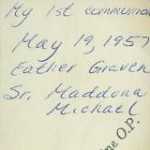 My 1st communion
May 19, 1957
Father Graven
Sr. Maddona
Michael
O.P.